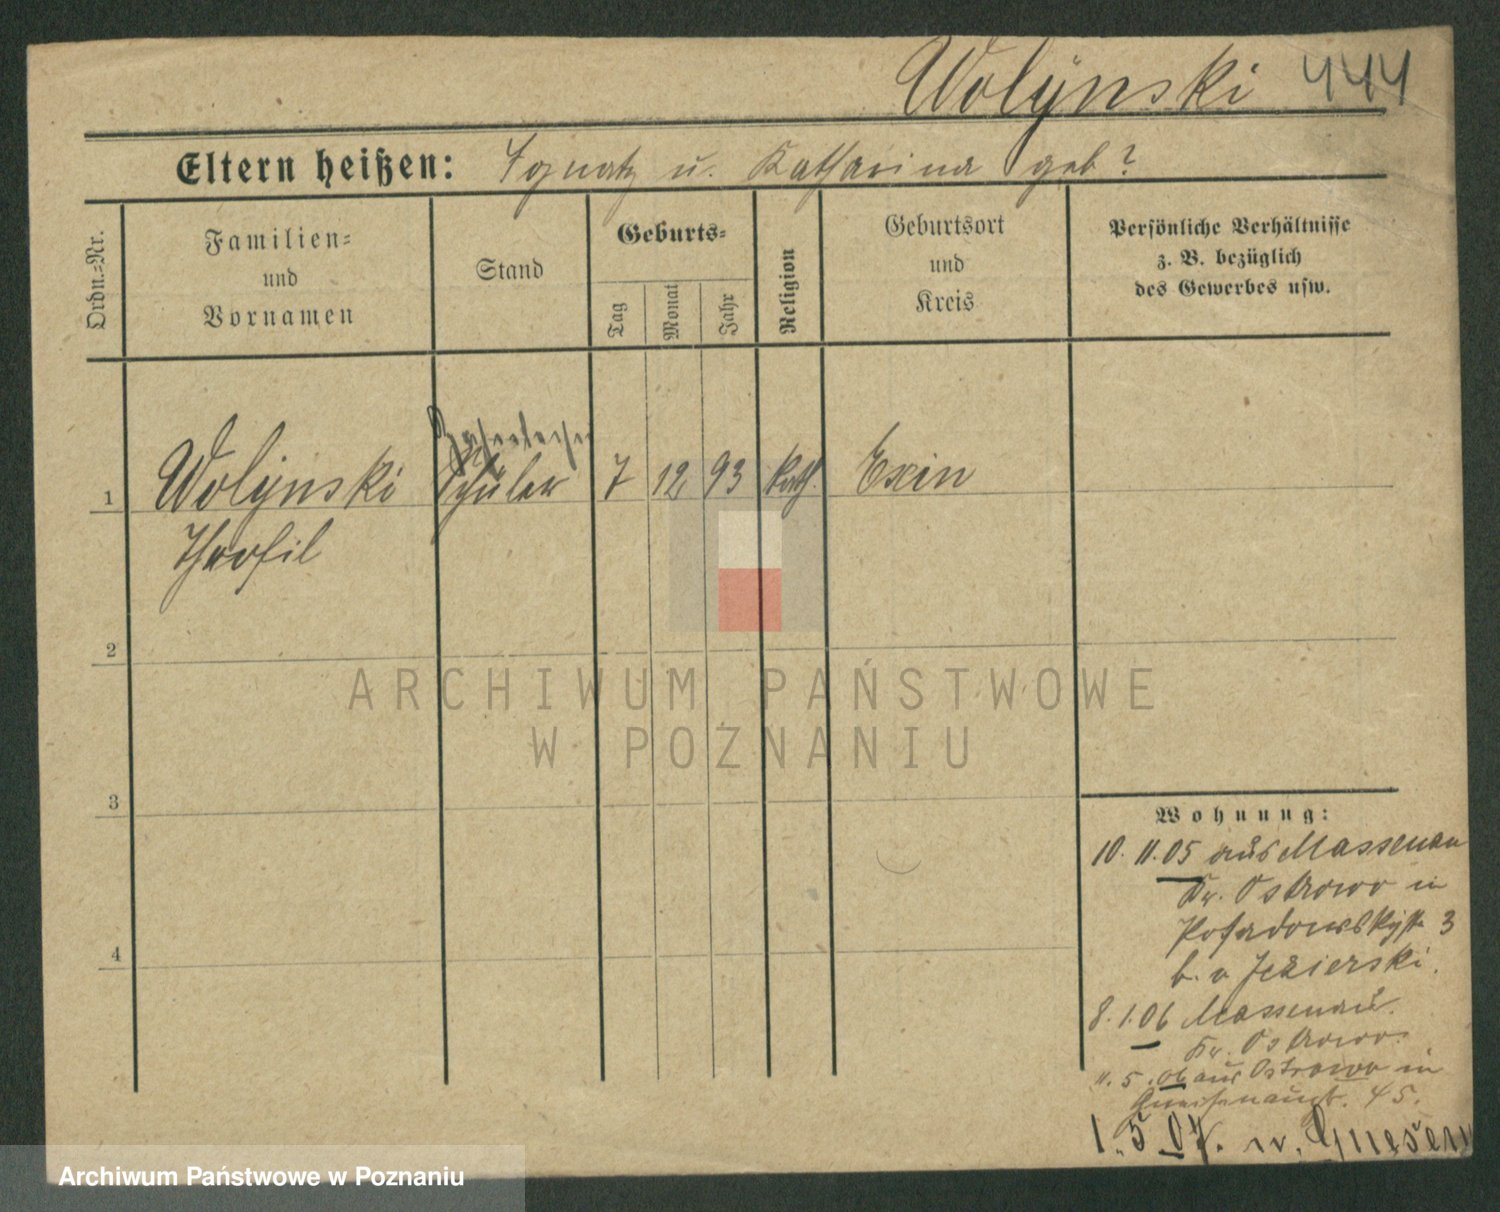 Wolÿnski 444
Eltern heißen: Ignatz u. Katharina geb?
Ordn.=Nr.
Familien=
und
Vornamen
Stand
Geburts=
Tag
Monat
Jahr
Religion
Geburtsort
und
Kreis
Persönliche Verhältnisse
z. B. bezüglich
des Gewerbes usw.
1 Wolÿnski Schüler 7 12 93 kath. Exin
Theofil
2
ARCHIWUM PAŃSTWOWE
W POZNANIU
3
4
Wohnung:
10. 11. 05 aus Massenau
Kr. Ostrowo in
Posadowskystr 3
b. v Jezierski.
8. 1. 06 Massenau.
Kr. Ostrowo.
11. 5. 06 aus Ostrowo in
45.
1. 5. 07. n. Gnesen
Archiwum Państwowe w Poznaniu